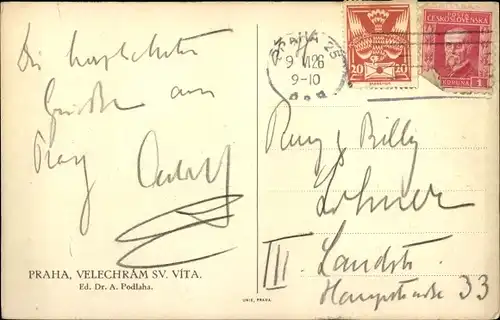 Die herzlichsten
Grüße aus
Prag Adolf
PRAHA, VELECHRÁM SV. VÍTA.
Ed. Dr. A. Podlaha.
UNIE, PRAHA.
PRAHA 25
9 VI 26
9-10
20 20
POŠTA
ČESKOSLOVENSKÁ
KORUNA 1
Billy
Lohner
III. Landstr.
Hauptstraße 33